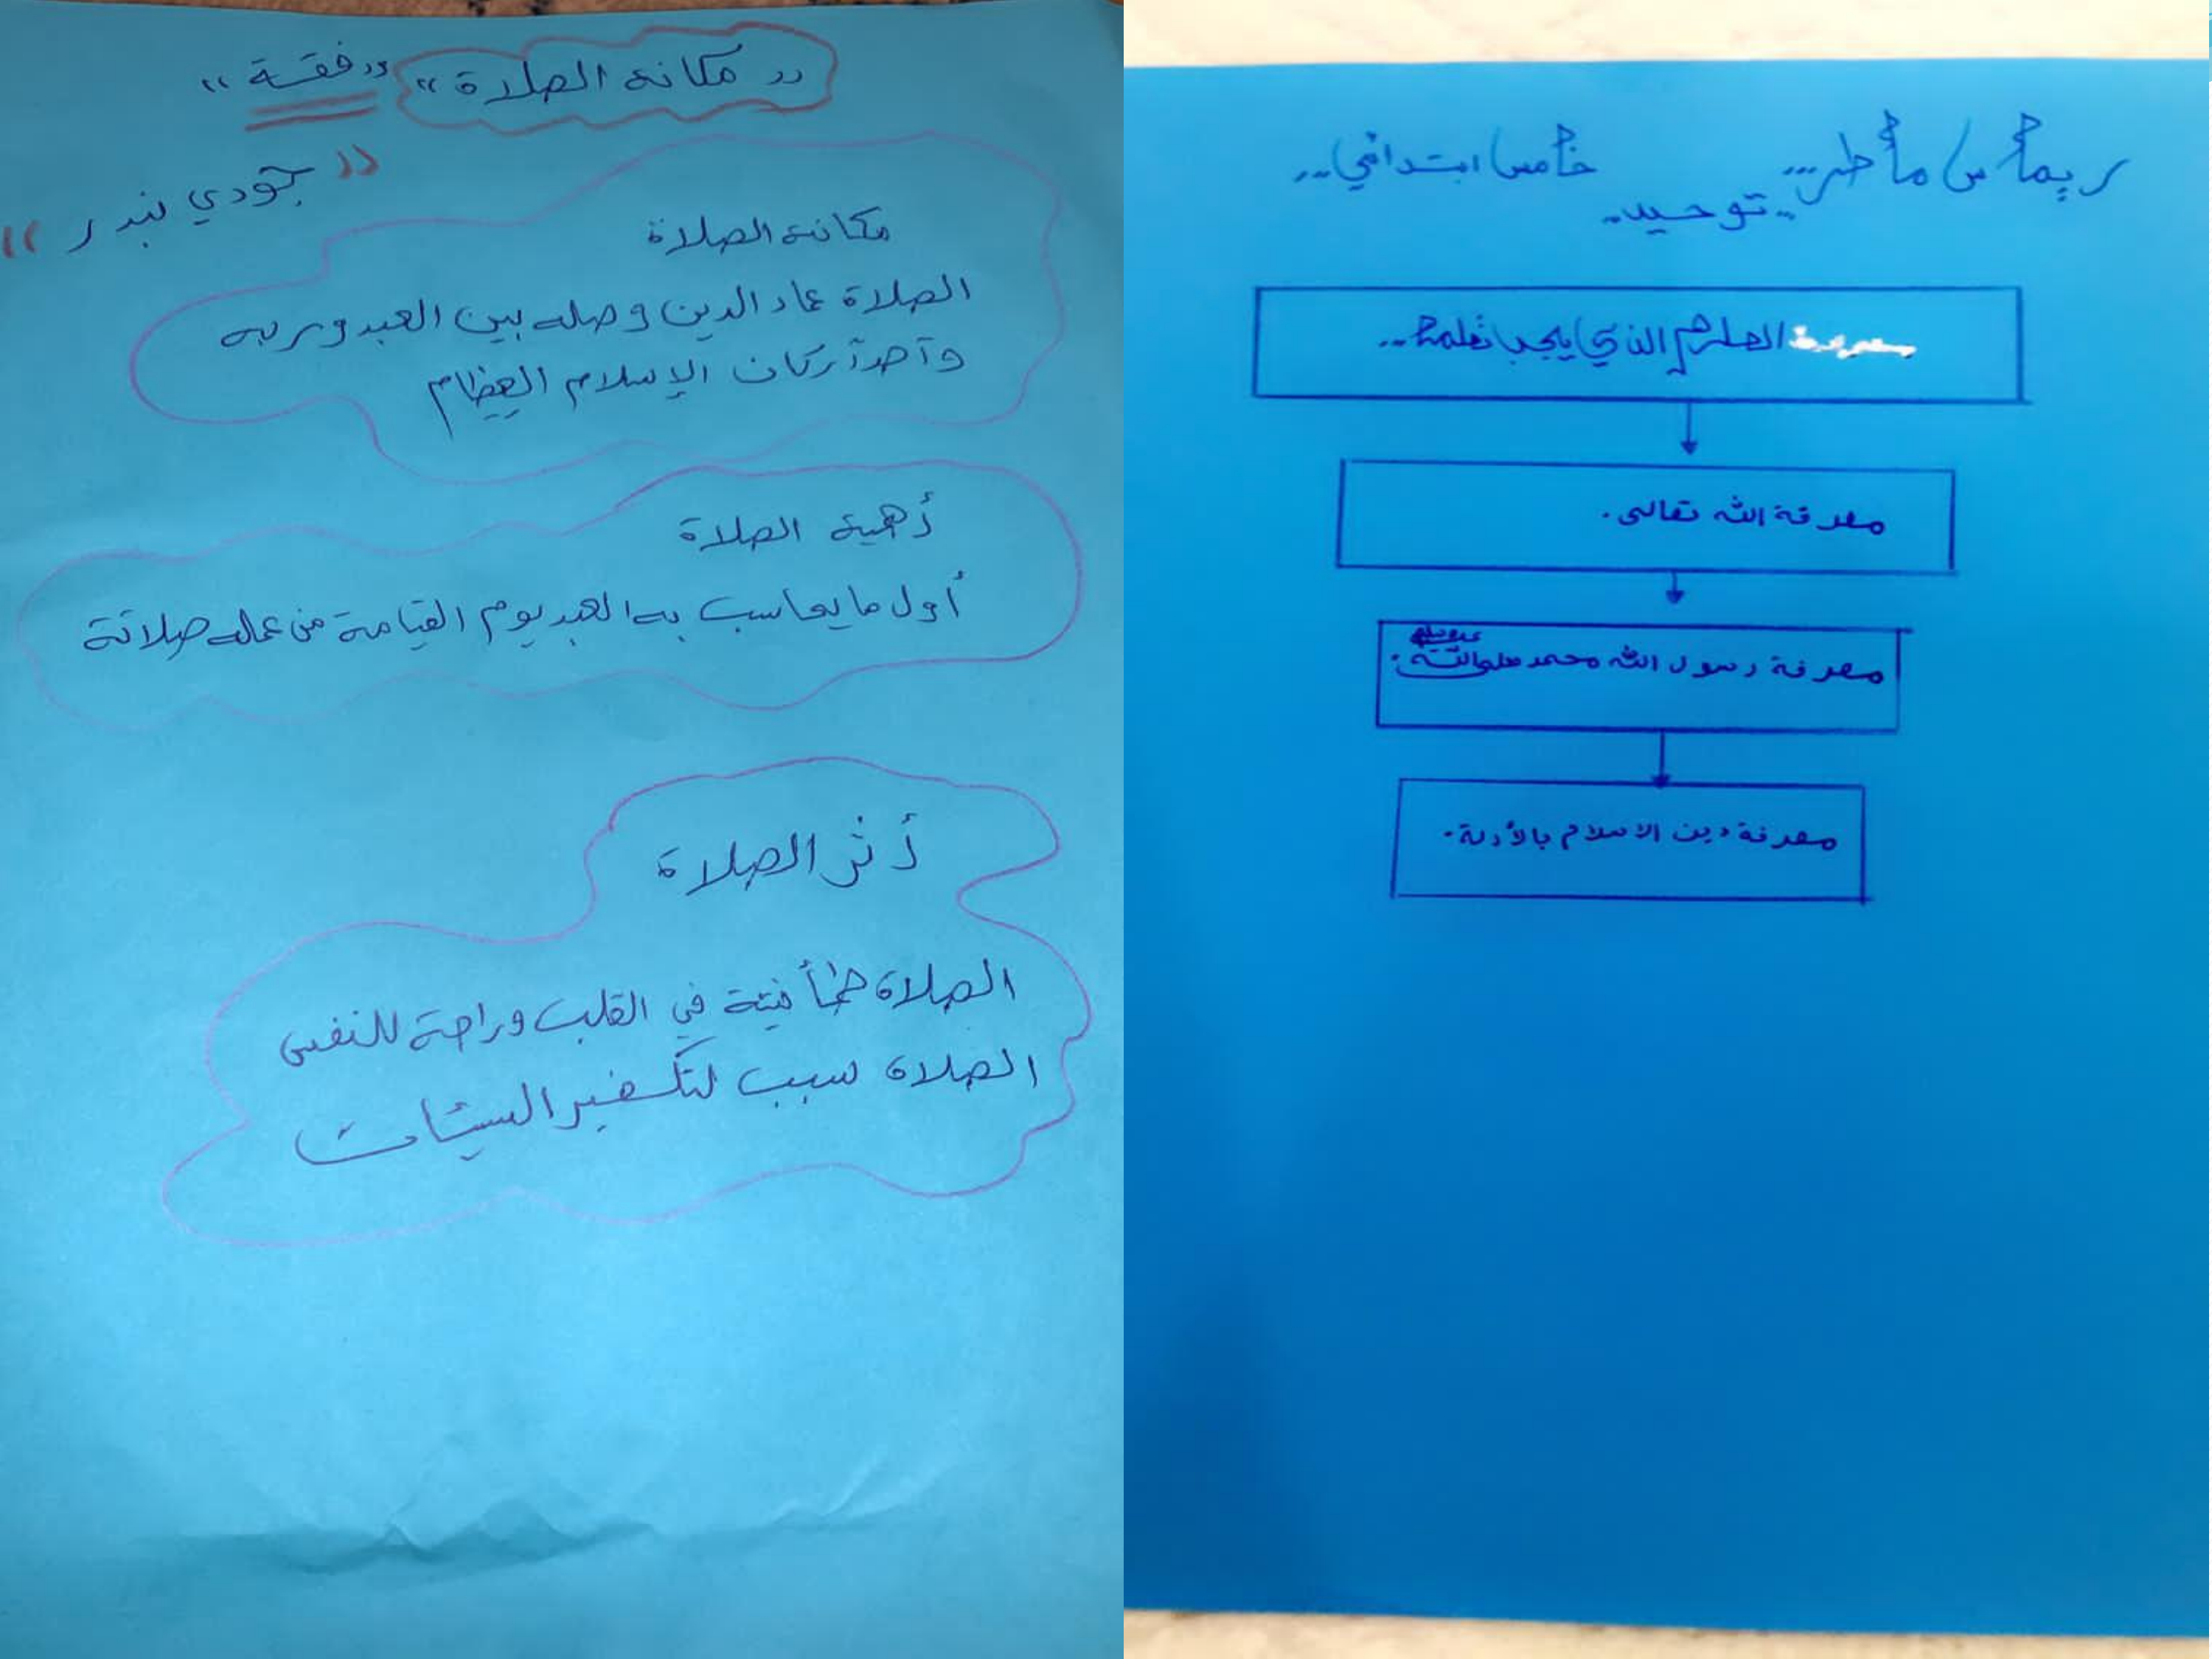 " مكانة الصلاة " " فقة "
" جودي بندر "
مكانة الصلاة
الصلاة عماد الدين وصله بين العبد وربه
وآحد آركان الإسلام العظام
أهمية الصلاة
أول ما يحاسب به العبد يوم القيامة من عمله صلاتة
أثر الصلاة
الصلاة طمأنينة في القلب وراحة للنفس
الصلاة سبب لتكفير السيئات
ريماس ماطر... خامس ابتدائي...
..توحيد..
العلوم الذي يجب تعلمها...
معرفة الله تعالى.
معرفة رسول الله محمد صلى الله عليه وسلم.
معرفة دين الاسلام بالأدلة.